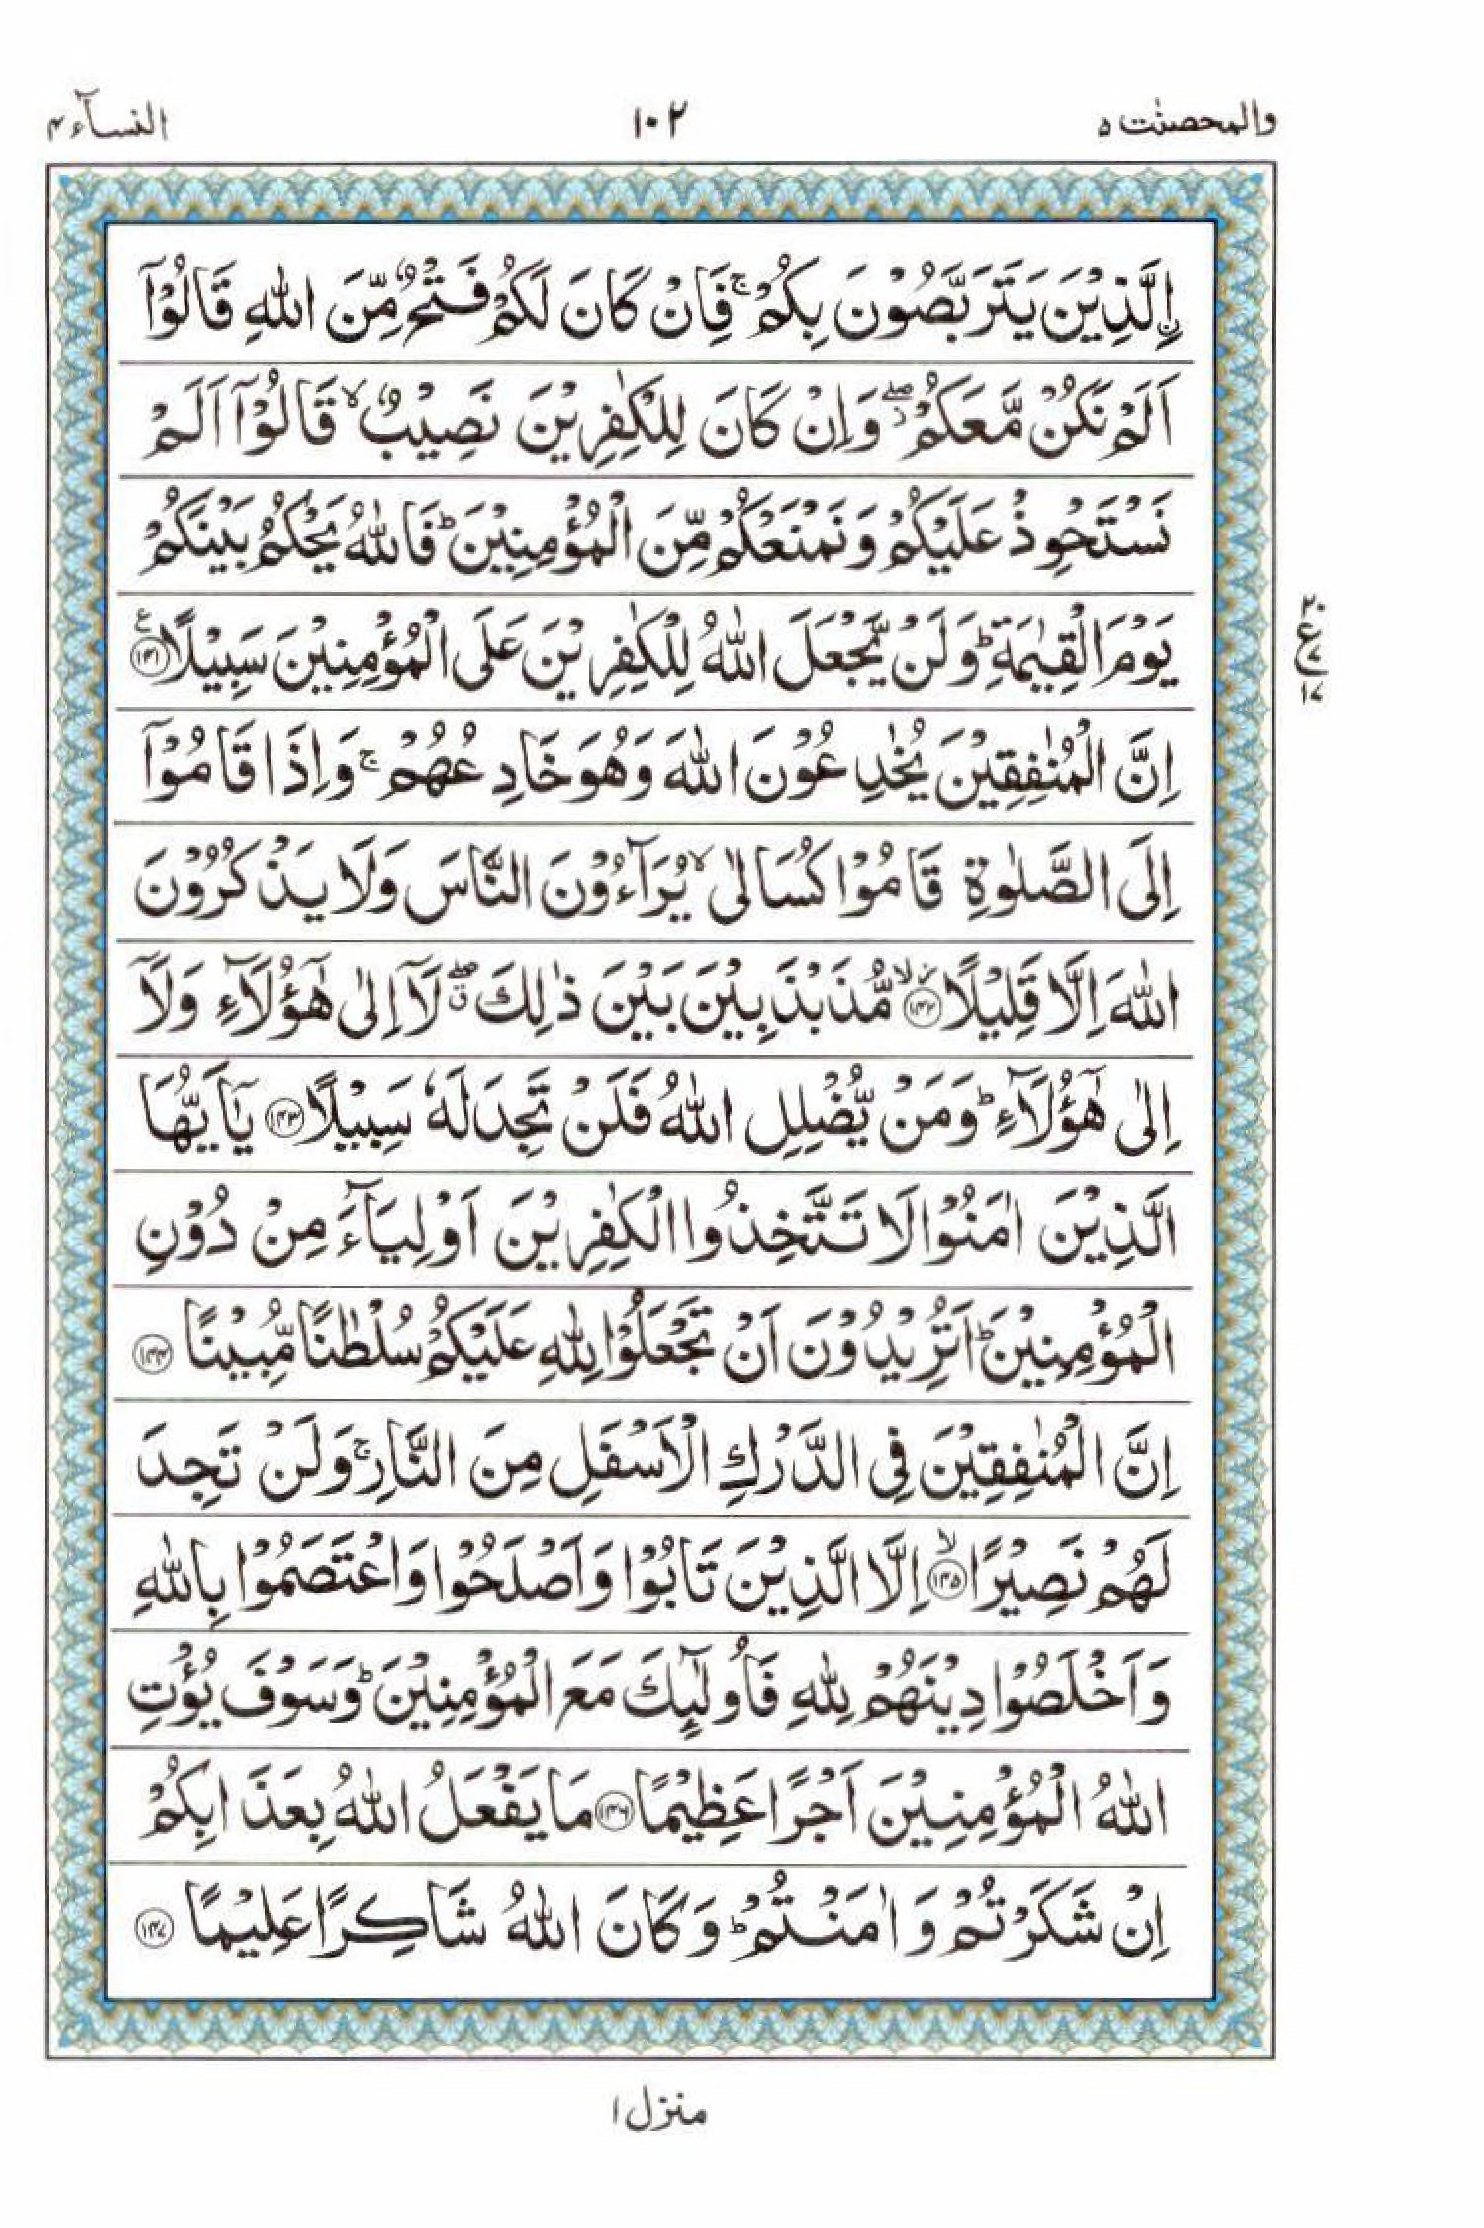 والمحصنٰت ۵ ۱۰۲ النسآء ۴
اِۨلَّذِيْنَ يَتَرَبَّصُوْنَ بِكُمْ ۚ فَاِنْ كَانَ لَكُمْ فَتْحٌ مِّنَ اللّٰهِ قَالُوْٓا
اَلَمْ نَكُنْ مَّعَكُمْ ۖ وَاِنْ كَانَ لِلْكٰفِرِيْنَ نَصِيْبٌ ۙ قَالُوْٓا اَلَمْ
نَسْتَحْوِذْ عَلَيْكُمْ وَنَمْنَعْكُمْ مِّنَ الْمُؤْمِنِيْنَ ؕ فَاللّٰهُ يَحْكُمُ بَيْنَكُمْ
يَوْمَ الْقِيٰمَةِ ؕ وَلَنْ يَّجْعَلَ اللّٰهُ لِلْكٰفِرِيْنَ عَلَى الْمُؤْمِنِيْنَ سَبِيْلًا ۱۴۱ ع
۲۰ ع ۷ ۱۷
اِنَّ الْمُنٰفِقِيْنَ يُخٰدِعُوْنَ اللّٰهَ وَهُوَ خَادِعُهُمْ ۚ وَاِذَا قَامُوْٓا
اِلَى الصَّلٰوةِ قَامُوْا كُسَالٰى ۙ يُرَآءُوْنَ النَّاسَ وَلَا يَذْكُرُوْنَ
اللّٰهَ اِلَّا قَلِيْلًا ۱۴۲ ۙ مُّذَبْذَبِيْنَ بَيْنَ ذٰلِكَ ۖ لَآ اِلٰى هٰٓؤُلَآءِ وَلَآ
اِلٰى هٰٓؤُلَآءِ ؕ وَمَنْ يُّضْلِلِ اللّٰهُ فَلَنْ تَجِدَ لَهٗ سَبِيْلًا ۱۴۳ يٰٓاَيُّهَا
الَّذِيْنَ اٰمَنُوْا لَا تَتَّخِذُوا الْكٰفِرِيْنَ اَوْلِيَآءَ مِنْ دُوْنِ
الْمُؤْمِنِيْنَ ؕ اَتُرِيْدُوْنَ اَنْ تَجْعَلُوْا لِلّٰهِ عَلَيْكُمْ سُلْطٰنًا مُّبِيْنًا ۱۴۴
اِنَّ الْمُنٰفِقِيْنَ فِى الدَّرْكِ الْاَسْفَلِ مِنَ النَّارِ ۚ وَلَنْ تَجِدَ
لَهُمْ نَصِيْرًا ۱۴۵ ۙ اِلَّا الَّذِيْنَ تَابُوْا وَاَصْلَحُوْا وَاعْتَصَمُوْا بِاللّٰهِ
وَاَخْلَصُوْا دِيْنَهُمْ لِلّٰهِ فَاُولٰٓئِكَ مَعَ الْمُؤْمِنِيْنَ ؕ وَسَوْفَ يُؤْتِ
اللّٰهُ الْمُؤْمِنِيْنَ اَجْرًا عَظِيْمًا ۱۴۶ مَا يَفْعَلُ اللّٰهُ بِعَذَابِكُمْ
اِنْ شَكَرْتُمْ وَاٰمَنْتُمْ ؕ وَكَانَ اللّٰهُ شَاكِرًا عَلِيْمًا ۱۴۷
منزل ۱